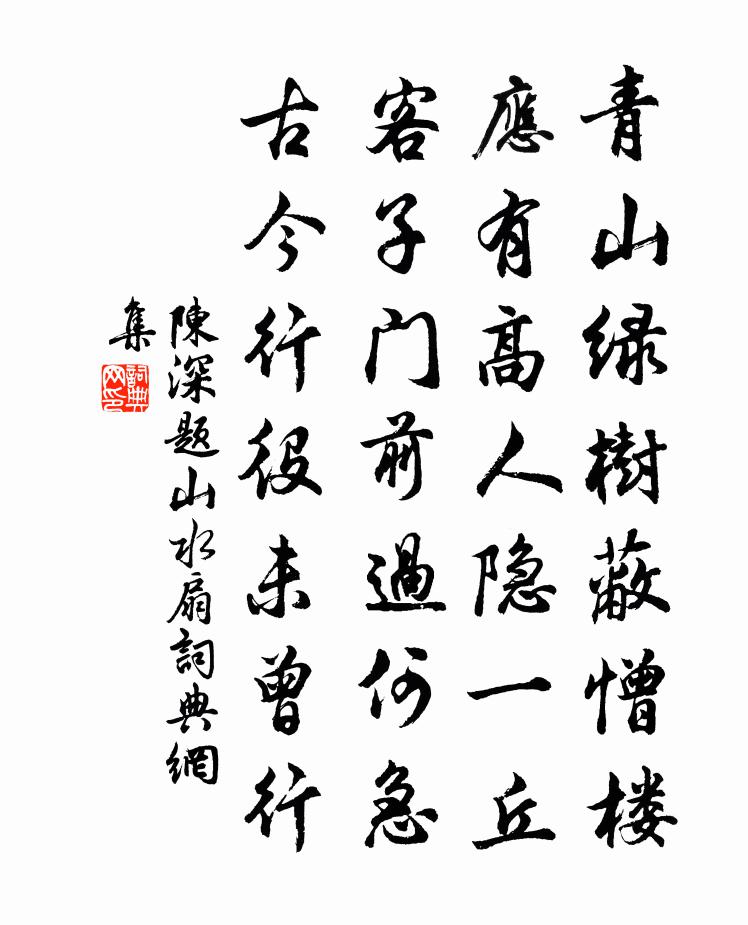 青山绿樹蔽憎楼
應有高人隐一丘
客子门前過何急
古今行役未曾行
陳深题山水扇詞典網
集
詞典网印